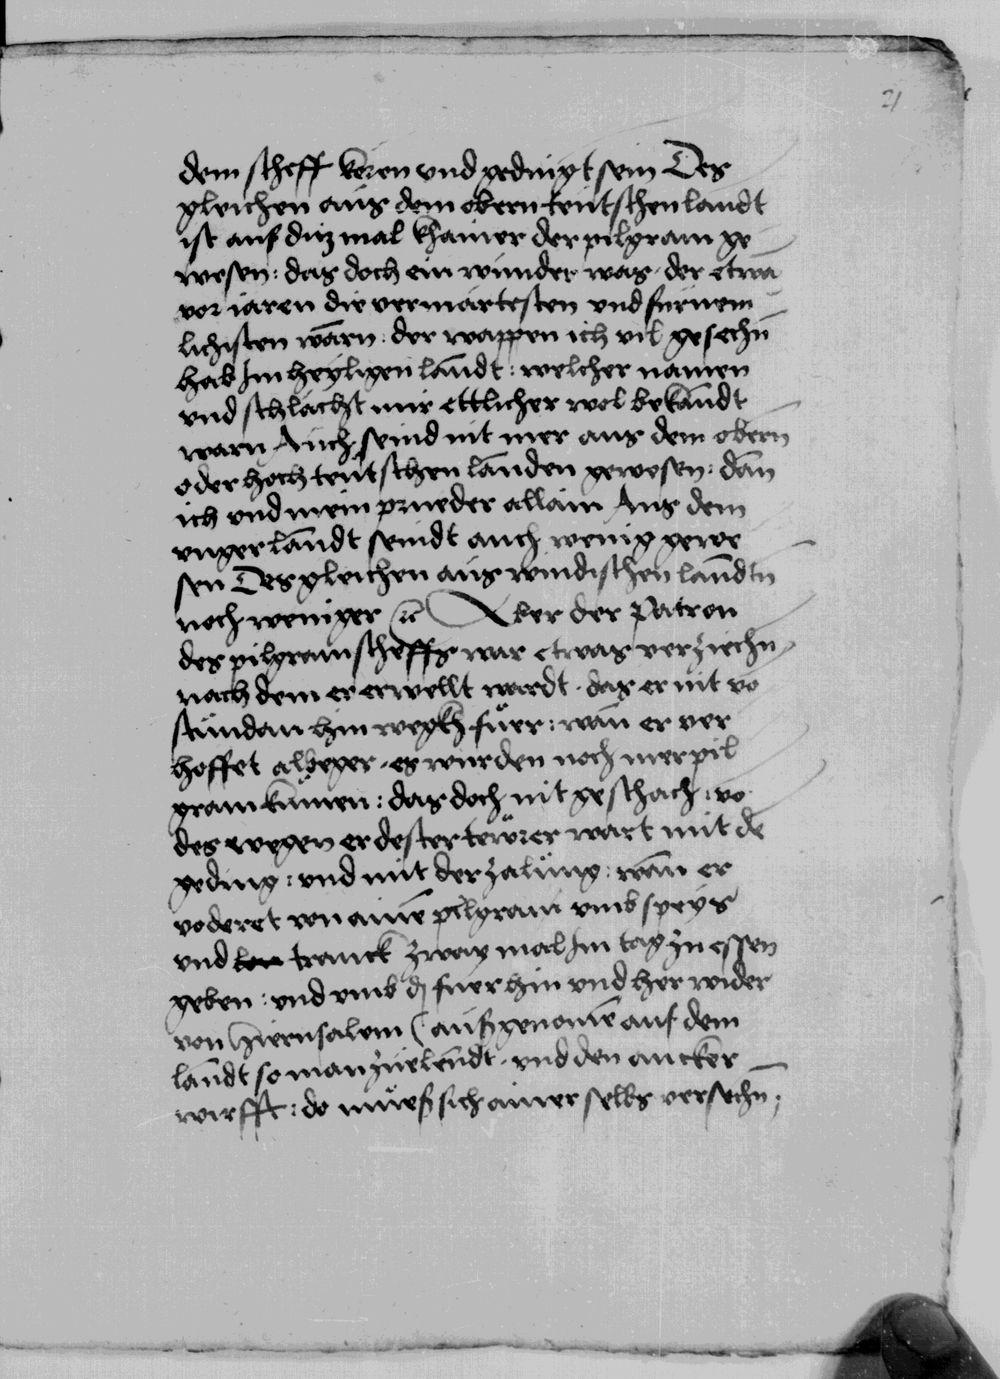 21
dem scheff keren vnd gedingt sein Des
gleichen aus dem obern teutschen landt
ist auf ditz mal khainer der pilgram ge
wesen: das doch ein wunder was. der etwā
vor iaren die vermärtesten vnd fürnem
lichisten warn. der wappen ich vil gesechn̄
hab Im heyligen landt: welcher namen
vnd schlächt mir ettlicher wol bekandt
warn Auch seind nit mer aus dem obern
oder hoch teutschen landen gewesen: dan
ich vnd mein prueder allain Aus dem
vngerlandt seindt auch wenig gewe
sen Desgleichen aus windischen landtn̄
noch weniger ꝛc Aber der Patron
des pilgram scheffs war etwas verziechn̄
nach dem er erwellt wardt. das er nit vō
stundan hin wegkh füer: wan er ver
hoffet alweger. es wurden noch mer pil
gram kumen: das doch nit geschach: vō
des wegen er dester tewrer wart mit dē
geding: vnd mit der zalung: wan er
voderet von ainē pilgram vmb speys
vnd tranck zway mal Im tag zu essen
geben: vnd vmb dz fuer hin vnd her wider
von Hierusalem (aufgenomē auf dem
landt so man zuelendt. vnd den ancker
wirfft: do muess sich ainer selbs versechn̄;